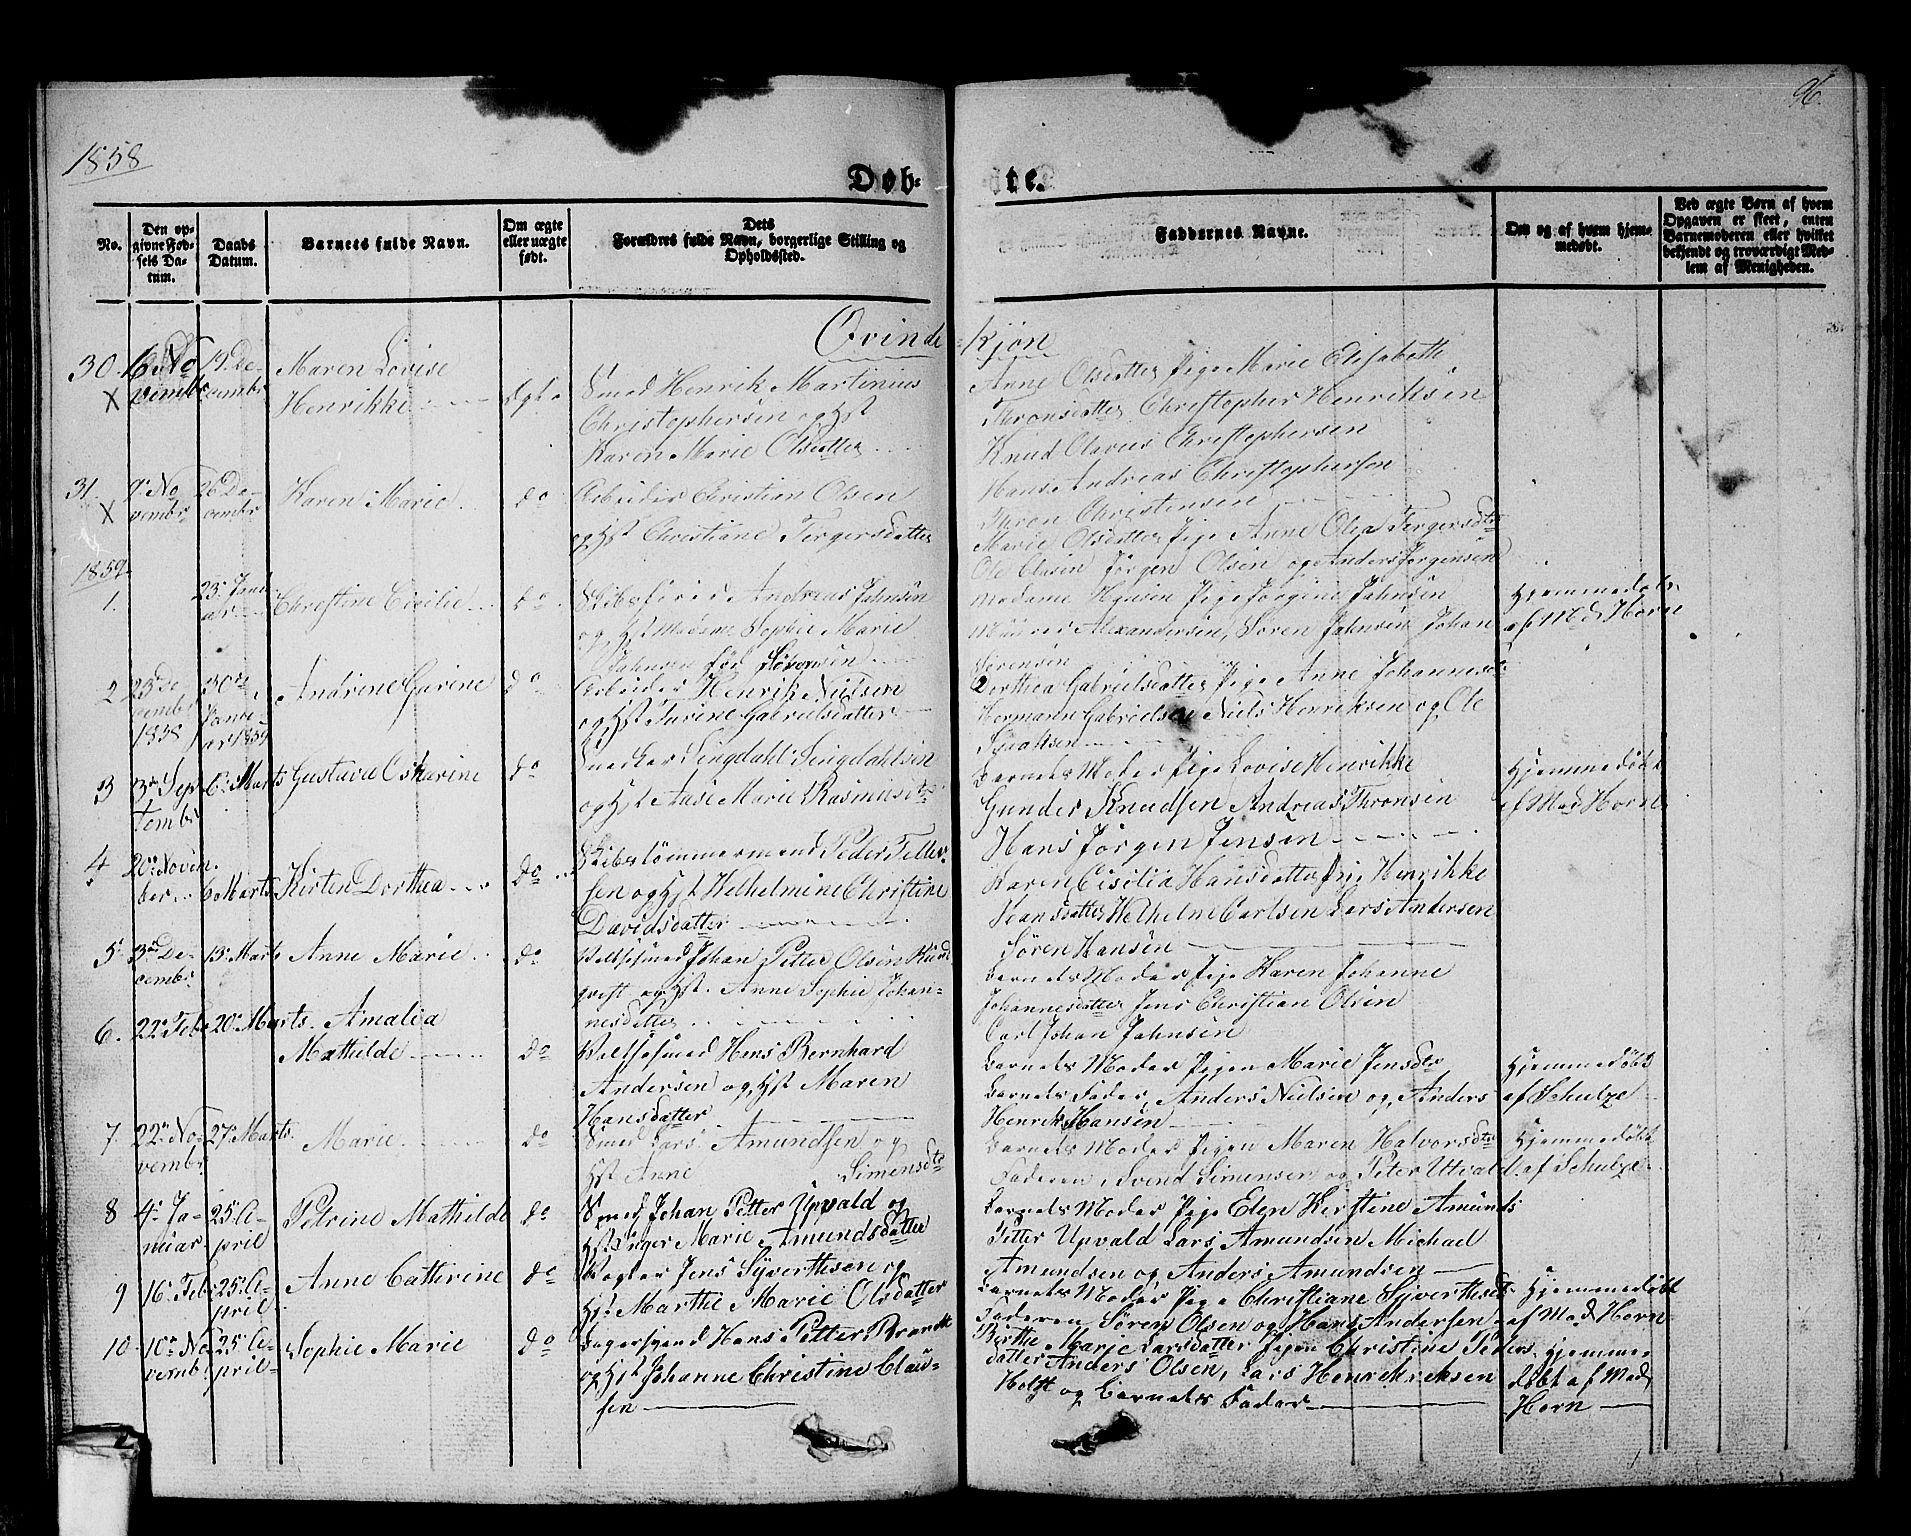 1858
96.
Døb-
te.
No.
Den op-
givne Fød-
sels Da-
tum.
Daabs
Datum.
Barnets fulde Navn.
Om ægte
eller uægte
født.
Dets
Forældres fulde Navn, borgerlige Stilling og
Opholdssted.
Faddernes Navne.
Om og af hvem hjem-
medøbt.
Ved ægte Børn af hvem
Opgaven er skeet, enten
Barnemoderen eller hvilket
bekjendt og troværdigt Med-
lem af Menigheden.
Qvinde-
kjøn
30. 16 No
vembr 19 De-
cembr Maren Lovise
Henrikke Smed Henrik Martinius
Christophersen og Hst
Karen Marie Olsdatter
Anne Olsdatter Pige Marie Elisabeth
Thronsdatter Christopher Henriksen
Knud Olavus Christophersen
Hans Andreas Christophersen
Thron Christensen
31 9 No
vembr 26 De-
cembr Karen Marie do Arbeider Christian Olsen
og Hst Christiane Tergersdatter
Marie Olsdatter Pige Anne Olea Tergersdtr
Ole Olsen Jørgen Olsen og Anders Jørgensen
1859
1. 23. Janu
ar Christine Cicilie do Skibsfører Andreas Jahnsen
og Hst Madame Sophie Marie
Jahnsen fød Sørensen
Madame Hansen Pige Jørgine Jahnsen
Murer Alexandersen, Søren Jahnsen Johan
Sørensen
Hjemmedøbt
af Md Horn
2 23 De
cembr
1858 30te
Janu-
ar 1859 Andrine Gurine do Arbeider Henrik Nielsen
og Hst Gurine Gabrielsdatter
Dorthea Gabrielsdatter Pige Anne Johannesd
Hermann Gabrielsen Niels Henriksen og Ole
Isaksen
3 3 Sep
tembr 6. Marts Gustava Oskarine do Snedker Lingdahl Lingdahlsen
og Hst Aase Marie Rasmusdtr
Barnets Moder Pige Lovise Henrikke
Gunder Knudsen Andreas Thronsen
Hans Jørgen Jensen
Hjemmedøbt
af Mad Horn
4 20 Novem
ber 6 Marts Kirsten Dorthea do Skibstømmermand Peder Teller-
sen og Hst Welhelmine Christine
Davidsdatter
Karen Cisilia Hansdatter Pige Henrikke
Hansdatter Welhelm Carlsen Lars Andersen
Søren Hansen
5 3 De-
cembr 13 Marts Anne Marie do Beltsmed Johan Petter Olsen Rund
qvist og Hst. Anne Sophie Johan-
nesdatter
Barnets Moder Pige Karen Johanne
Johannesdatter Jens Christian Olsen
Carl Johan Jahnsen
6. 22 Feb 20 Marts. Amalia
Mathilde do Beltsmed Hans Bernhard
Andersen og Hst Maren
Hansdatter
Barnets Moder Pigen Marie Jensdtr
Barnets Fader, Anders Nielsen og Anders
Henrik Hansen
Hjemmedøbt
af Schulze
7 22 No-
vembr 27 Marts Marie do Smed Lars Amundsen og
Hst Anne Simensdtr
Barnets Moder Pigen Maren Halvorsdtr
Faderen, Svend Simensen og Peter Utvald
Hjemmedøbt
af Schulze
8 4 Ja-
nuar 25 A-
pril Petrine Mathilde do Smed Johan Petter Uppvald og
Hst Inger Marie Amundsdatter
Barnets Moder Pige Elen Kirstine Amunds
Petter Upvald Lars Amundsen Michael
Amundsen og Anders Amundsen
9 16. Feb 25 A-
pril Anne Cathrine do Jens Syverthsen og
Hst Marthe Marie Olsdatter
Barnets Moder Pige Christiane Syverthsdtr
Faderen Søren Olsen og Hans Andersen
Hjemmedøbt
af Mad Horn
10 10 No
vembr 25 A-
pril Sophie Marie do Bagersvend Hans Petter Brandt
og Hst Johanne Christine Clau-
sen
Berthe Marie Larsdatter Pigen Christine Peders
datter Anders Olsen, Lars Henrik
Holst og Barnets Fader
Hjemme
døbt af Mad
Horn